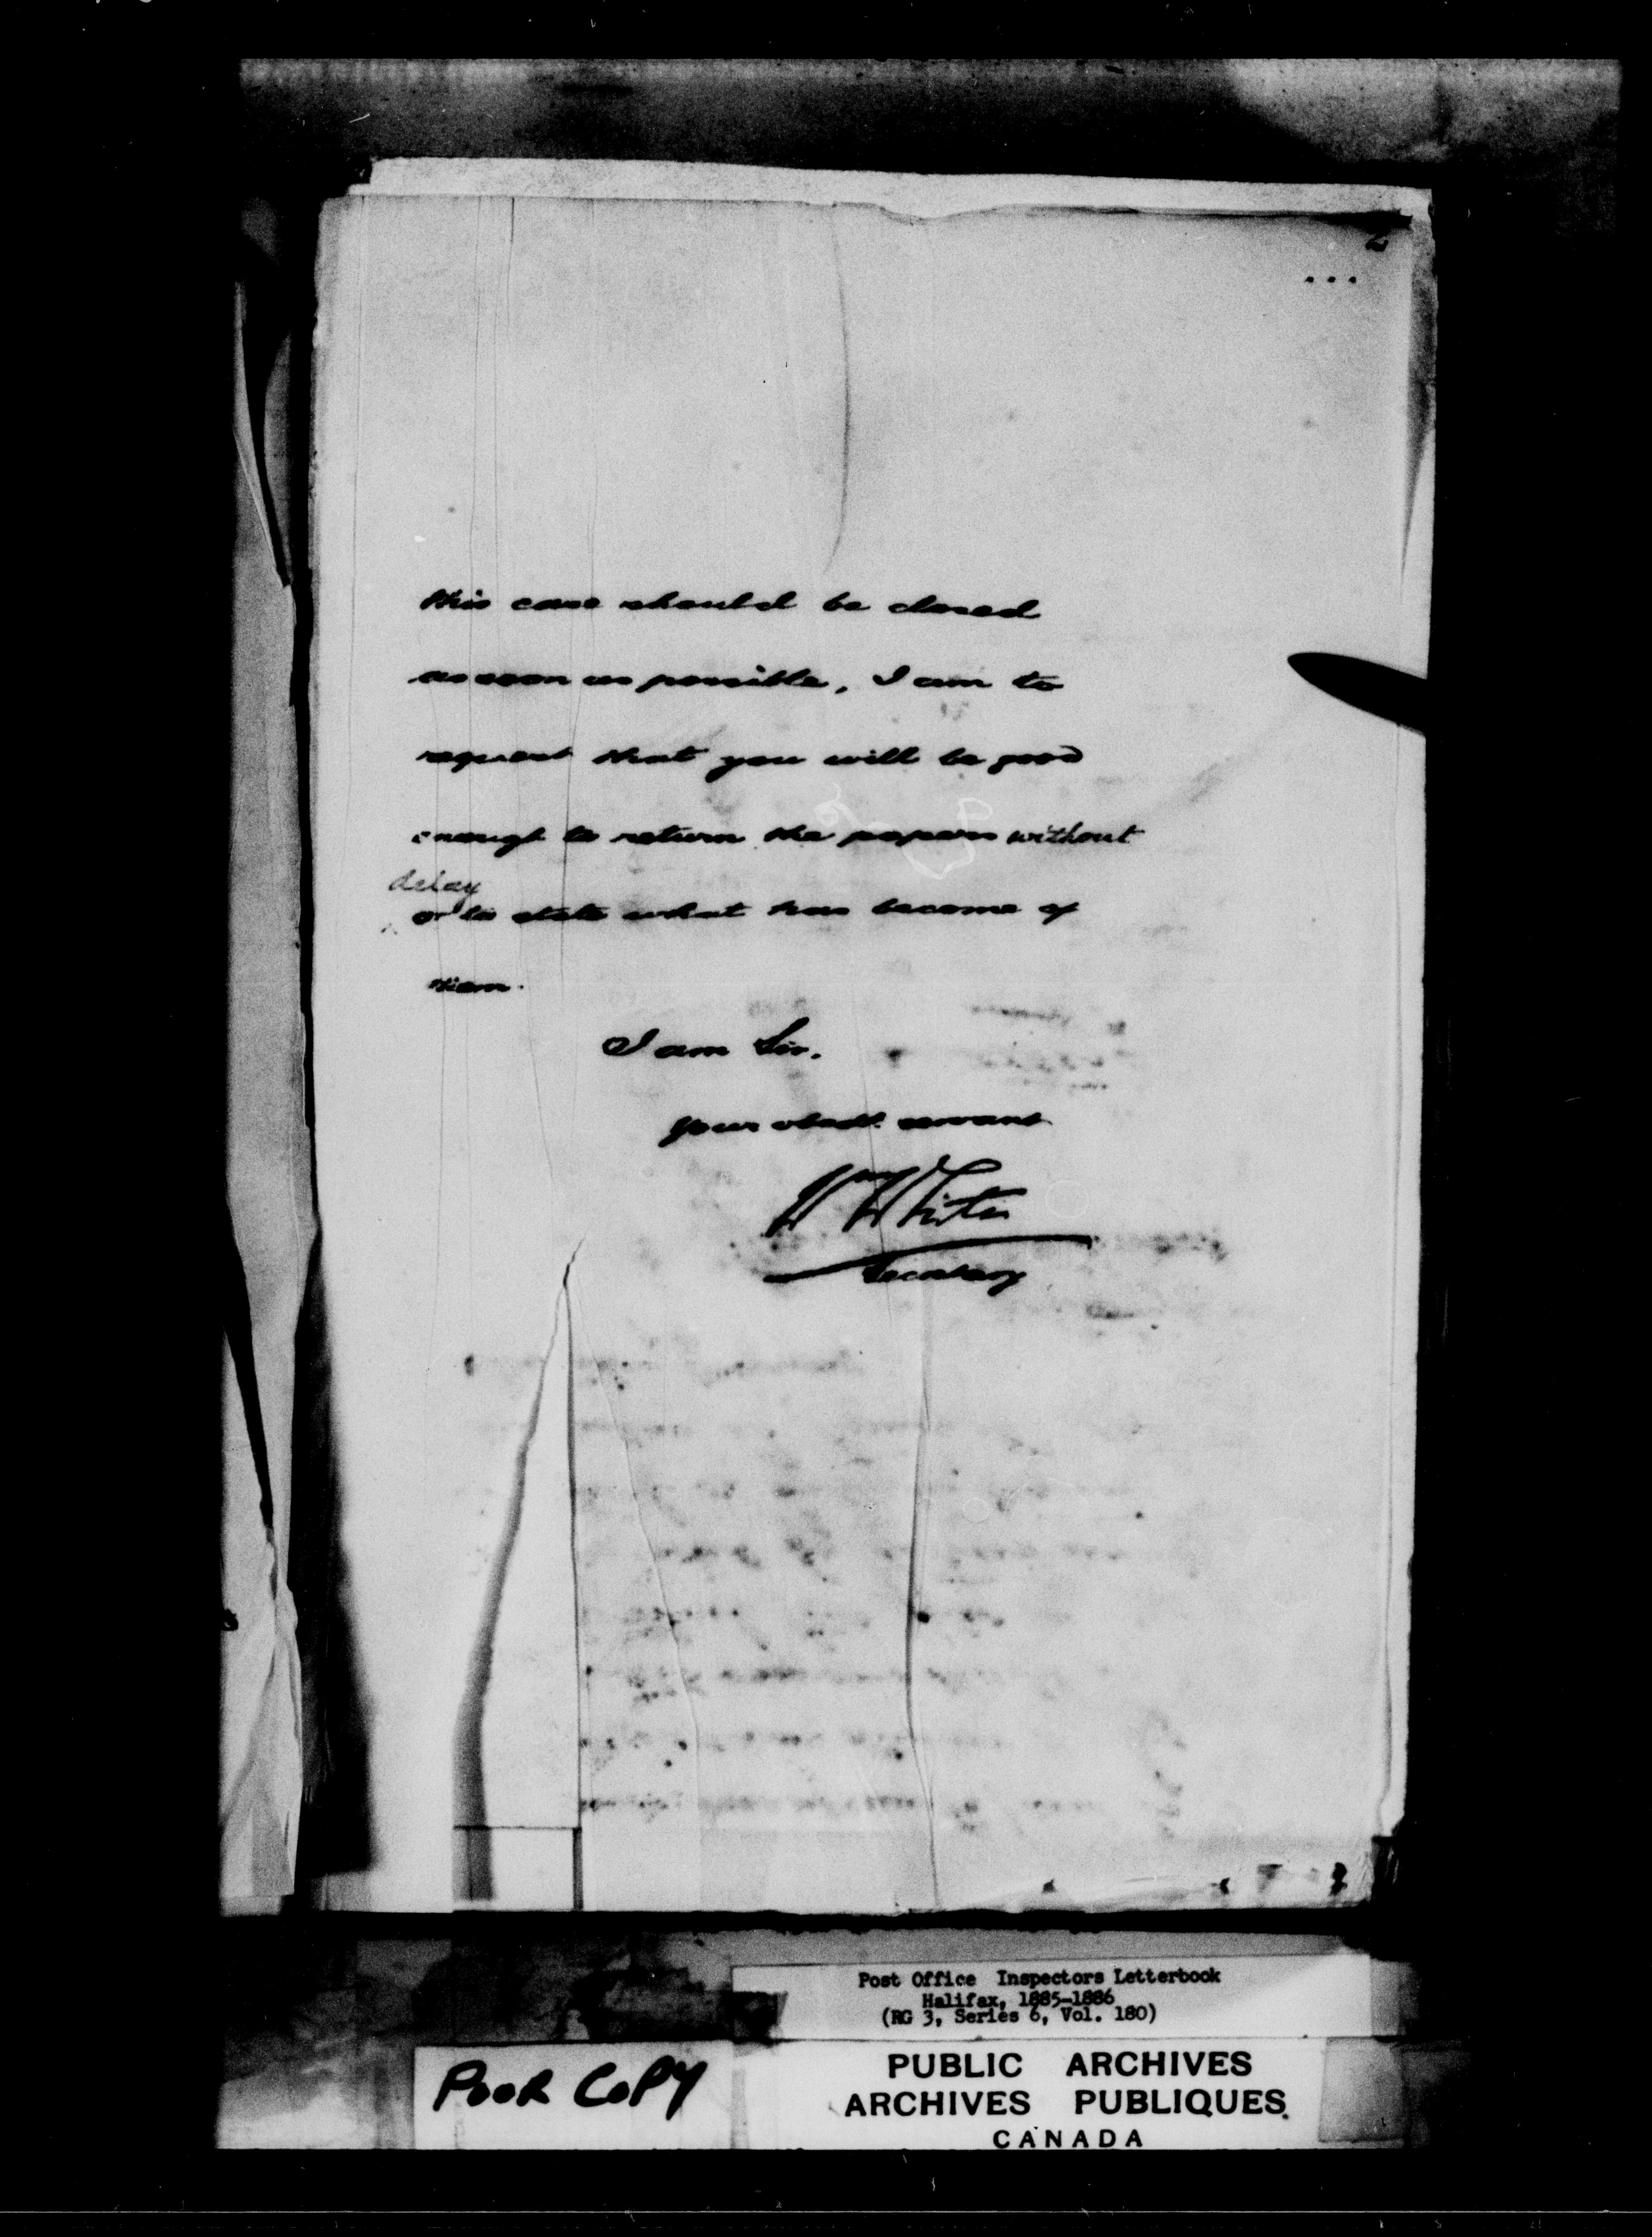 2
...
this case should be closed
as soon as possible, I am to
request that you will be good
enough to return the papers without
delay
or to state what has become of
them.
I am Sir.
Your obedt. servant
Wm White
Secretary
Post Office Inspectors Letterbook
Halifax, 1885-1886
(RG 3, Series 6, Vol. 180)
POOR COPY
PUBLIC ARCHIVES
ARCHIVES PUBLIQUES
CANADA